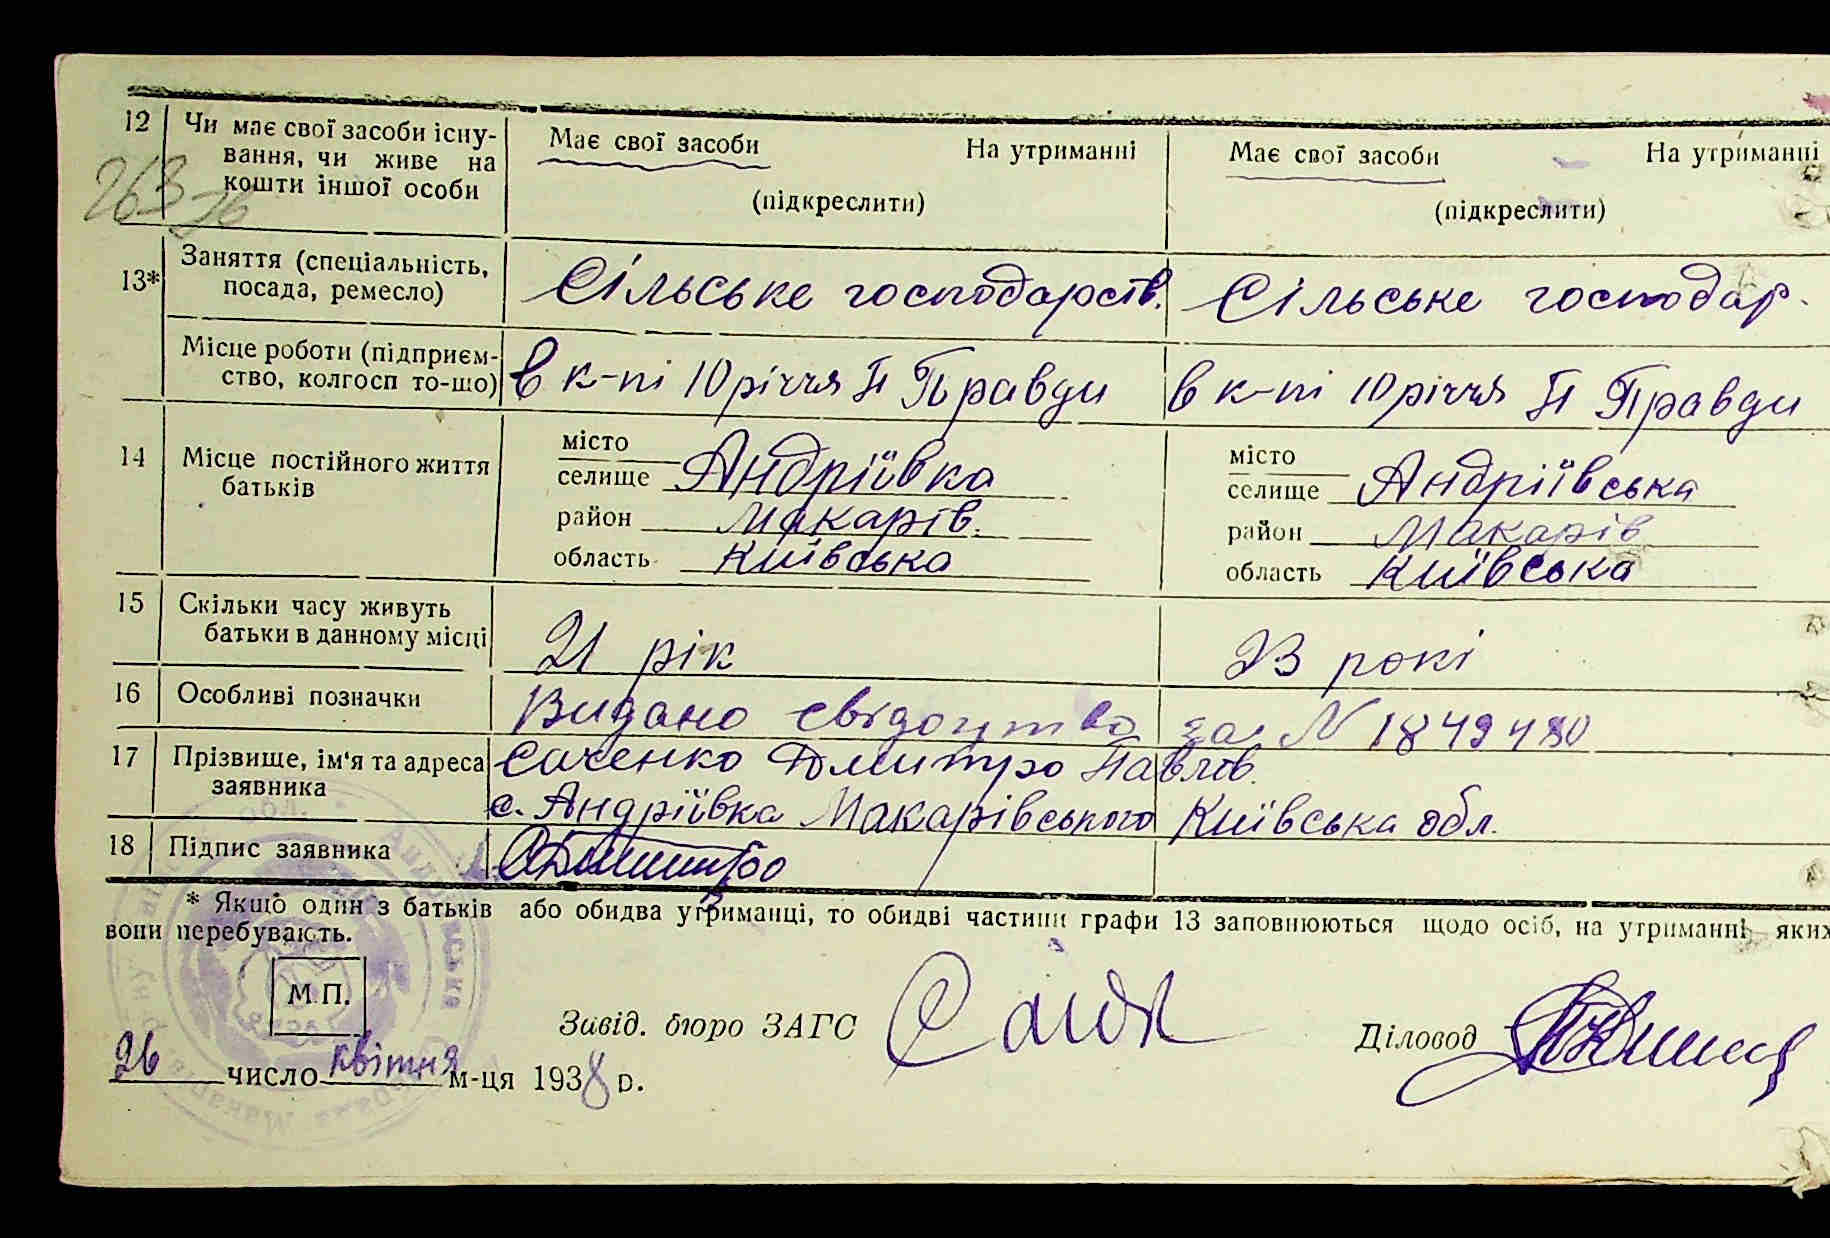 12 Чи має свої засоби існу- Має свої засоби На утриманні Має свої засоби На утриманні
вання, чи живе на
кошти іншої особи (підкреслити) (підкреслити)
263
13* Заняття (спеціальність, Сільське господарств. Сільське господар.
посада, ремесло)
Місце роботи (підприєм- в к-пі 10 річчя Правди в к-пі 10 річчя Правди
ство, колгосп то-що)
14 Місце постійного життя місто місто
батьків селище Андріївка селище Андріївська
район Макарів. район Макарів
область Київська область Київська
15 Скільки часу живуть
батьки в данному місці 21 рік 23 рокі
16 Особливі позначки Видано свідоцтво за N 1849480
17 Прізвище, ім'я та адреса Саченко Дмитро Павлов.
заявника с. Андріївка Макарівського Київська обл.
18 Підпис заявника
* Якщо один з батьків або обидва утриманці, то обидві частини графи 13 заповнюються щодо осіб, на утриманні яких
вони перебувають.
М.П.
Завід. бюро ЗАГС Діловод
26 число квітня м-ця 1938 р.